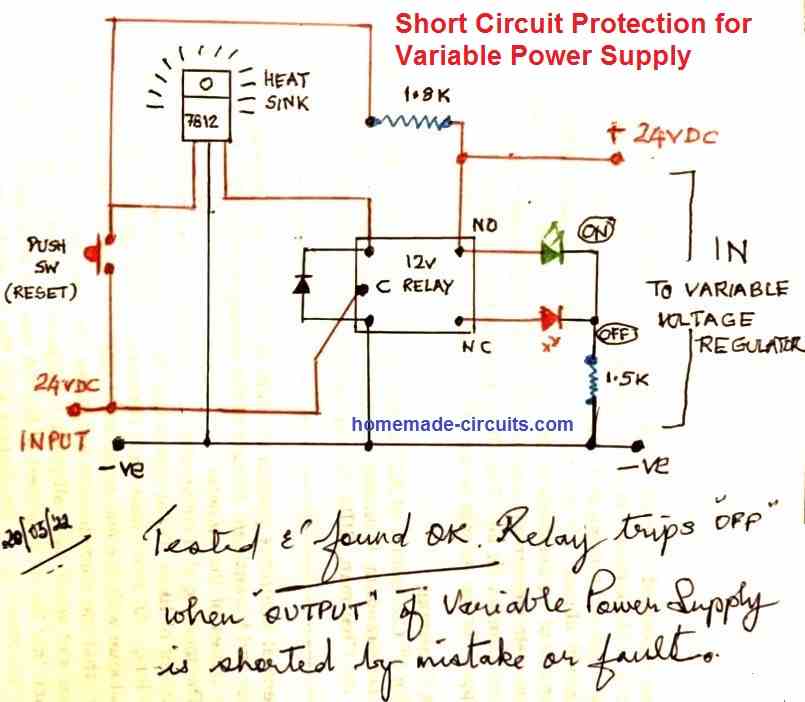 Short Circuit Protection for
Variable Power Supply
HEAT
SINK
7812
1.8K
+ 24VDC
NO
ON
PUSH
SW
(RESET)
12V
C RELAY
IN
TO VARIABLE
VOLTAGE
REGULATOR
OFF
NC
1.5K
24VDC
INPUT
homemade-circuits.com
-ve
-ve
20/03/22
Tested & found OK. Relay trips "OFF"
when "OUTPUT" of Variable Power Supply
is shorted by mistake or fault.